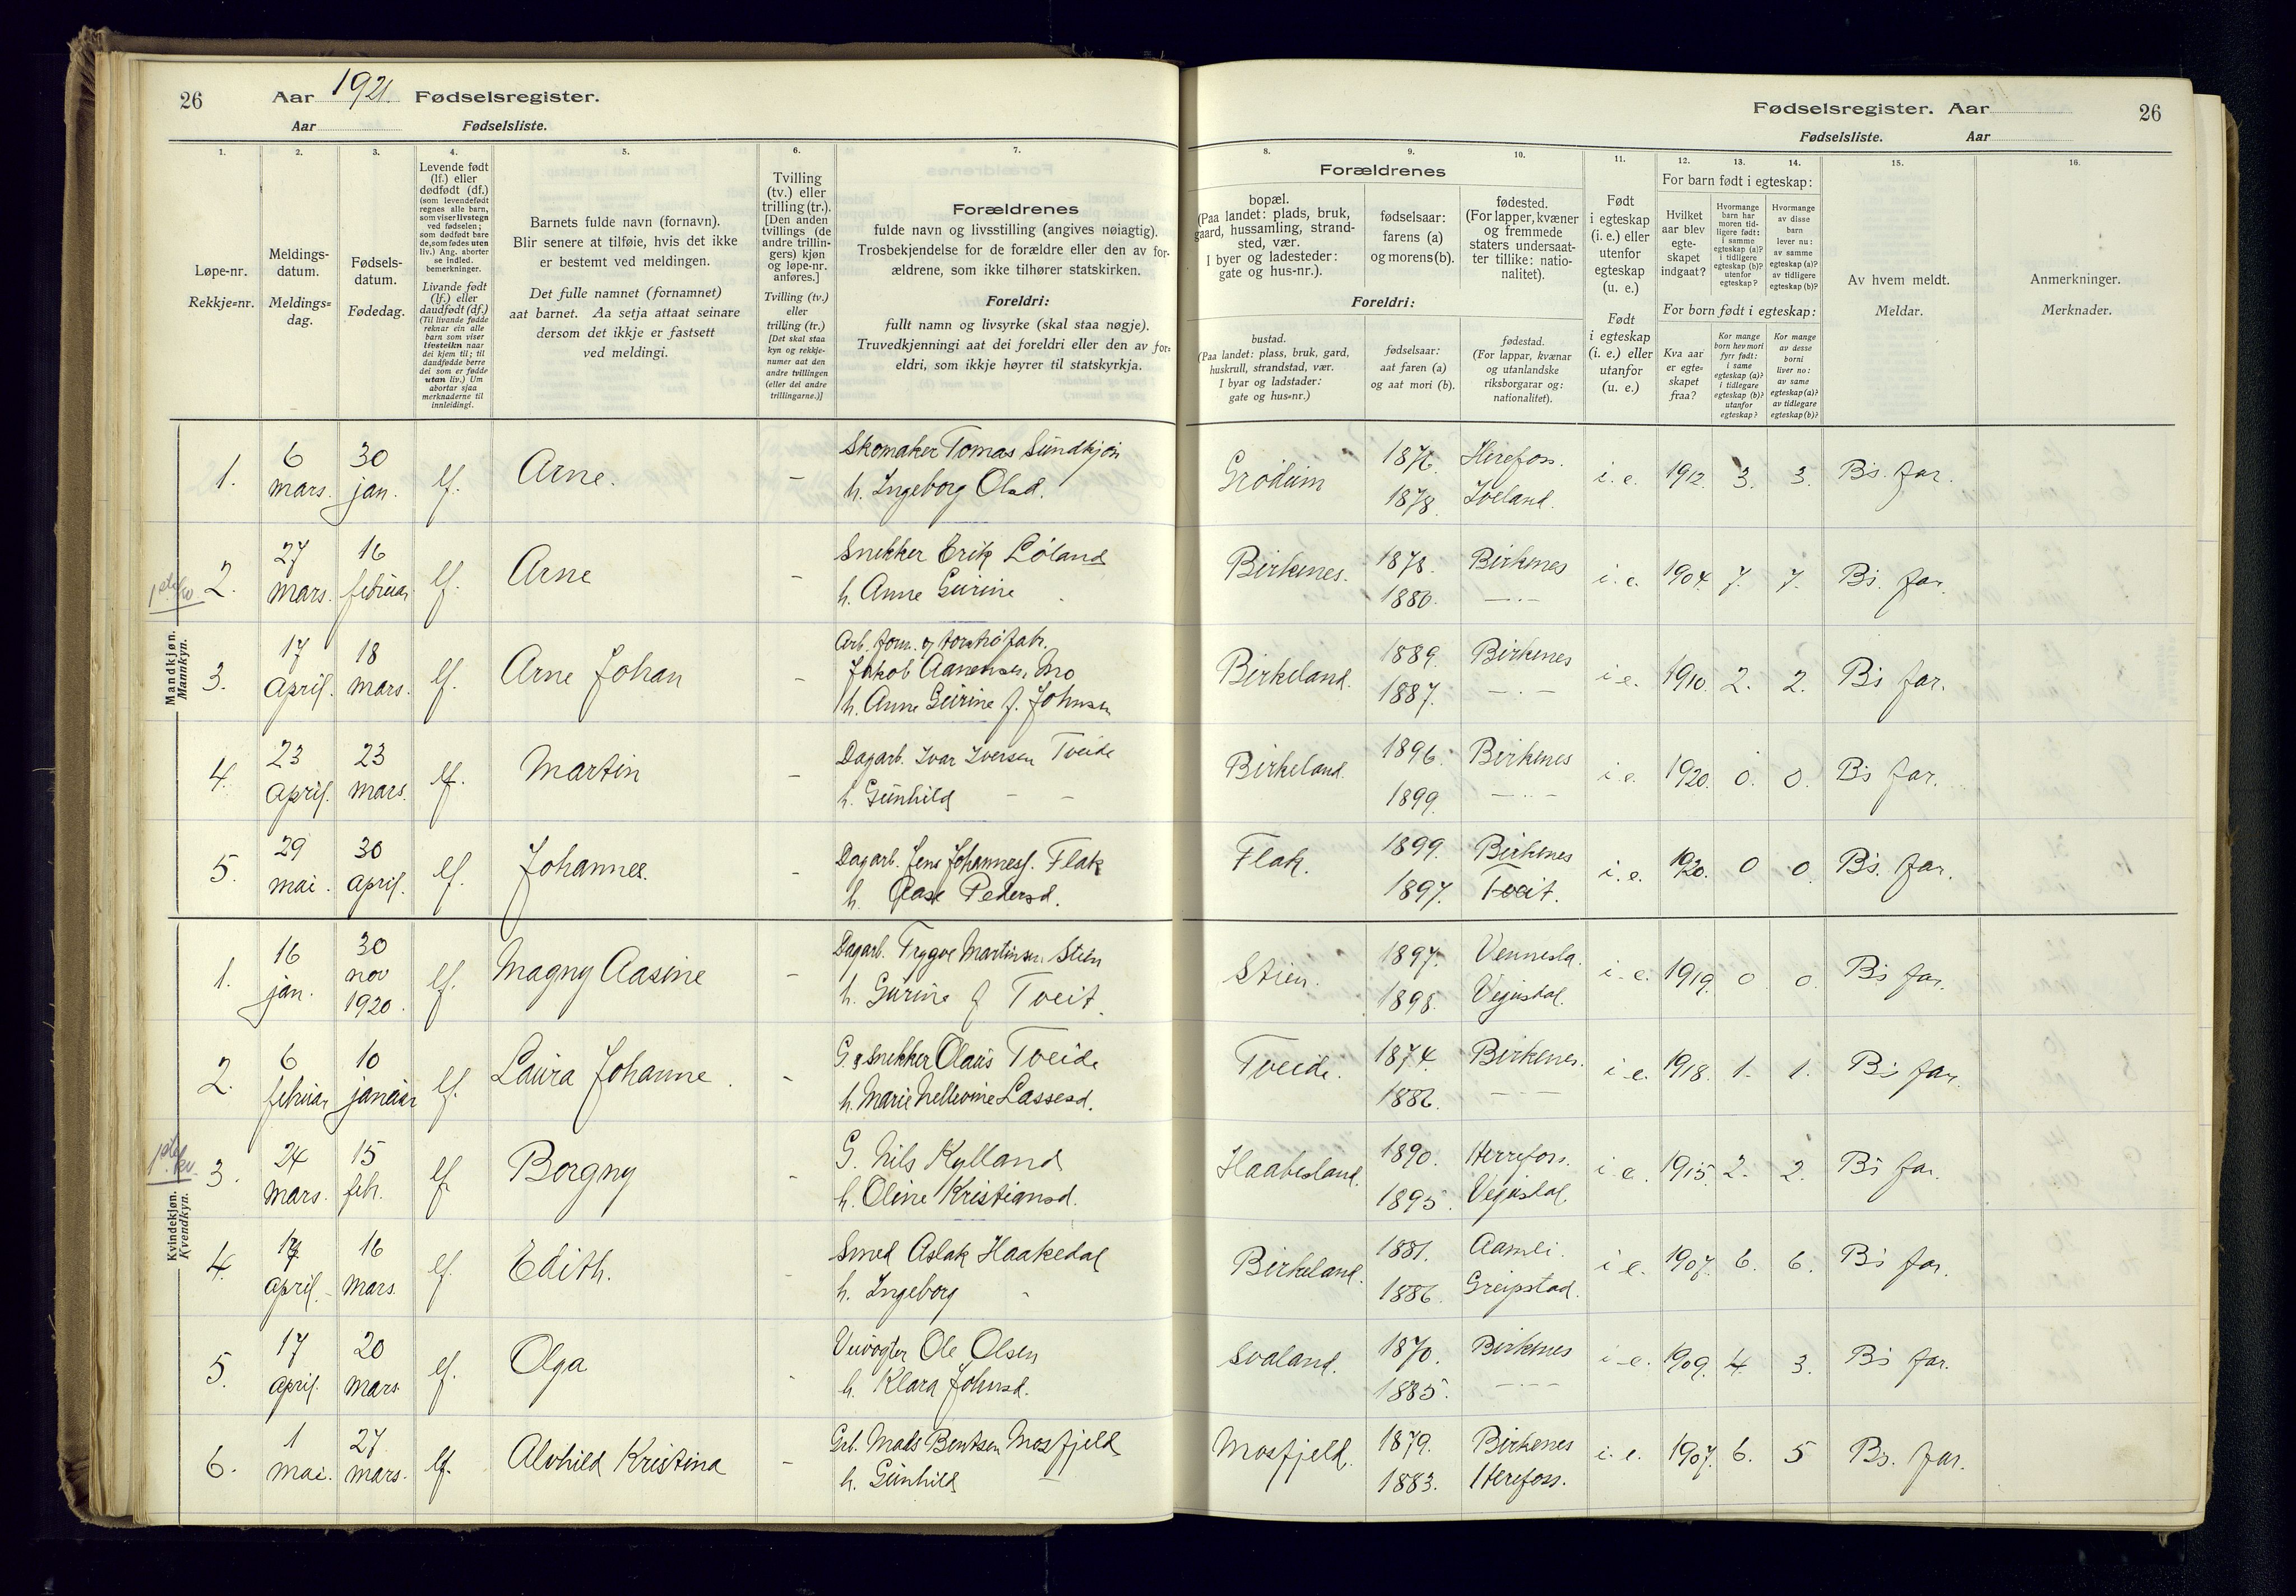 26 Aar 1921. Fødselsregister.
Aar Fødselsliste.
Fødselsregister. Aar 26
Fødselsliste. Aar
1. 2. 3. 4. 5. 6. 7. 8. 9. 10. 11. 12. 13. 14. 15. 16.
Løpe-nr.
Rekkje=nr.
Meldings-
datum.
Meldings=
dag.
Fødsels-
datum.
Fødedag.
Levende født
(lf.) eller
dødfødt (df.)
(som levendefødt
regnes alle barn,
som viser livstegn
ved fødselen;
som dødfødt bare
de, som fødes uten
liv.) Ang. aborter
se indled.
bemerkninger.
Livande født
(lf.) eller
daudfødt (df.)
(Til livande fødde
reknar ein alle
barn som viser
livsteikn naar
dei kjem til; til
daudfødde berre
dei som er fødde
utan liv.) Um
abortar sjaa
merknaderne til
innleidingi.
Barnets fulde navn (fornavn).
Blir senere at tilføie, hvis det ikke
er bestemt ved meldingen.
Det fulle namnet (fornamnet)
aat barnet. Aa setja attaat seinare
dersom det ikkje er fastsett
ved meldingi.
Tvilling
(tv.) eller
trilling (tr.).
[Den anden
tvillings (de
andre trillin-
gers) kjøn
og løpe-nr.
anføres.]
Tvilling (tv.)
eller
trilling (tr.)
[Det skal staa
kyn og rekkje-
numer aat den
andre tvillingen
(eller dei andre
trillingarne.)]
Forældrenes
fulde navn og livsstilling (angives nøiagtig).
Trosbekjendelse for de forældre eller den av for-
ældrene, som ikke tilhører statskirken.
Foreldri:
fullt namn og livsyrke (skal staa nøgje).
Truvedkjenningi aat dei foreldri eller den av for=
eldri, som ikkje høyrer til statskyrkja.
Forældrenes
bopæl.
(Paa landet: plads, bruk,
gaard, hussamling, strand-
sted, vær.
I byer og ladesteder:
gate og hus-nr.).
fødselsaar:
farens (a)
og morens (b).
fødested.
(For lapper, kvæner
og fremmede
staters undersaat-
ter tillike: natio-
nalitet).
Foreldri:
bustad.
(Paa landet: plass, bruk, gard,
huskrull, strandstad, vær.
I byar og ladstader:
gate og hus=nr.)
fødselsaar:
aat faren (a)
og aat mori (b).
fødestad.
(For lappar, kvænar
og utanlandske
riksborgarar og:
nationalitet).
Født
i egteskap
(i. e.) eller
utenfor
egteskap
(u. e.)
Født
i egteskap
(i. e.) eller
utanfor
(u. e.)
For barn født i egteskap:
Hvilket
aar blev
egte-
skapet
indgaat?
Hvormange
barn har
moren tid-
ligere født:
i samme
egteskap (a)?
i tidligere
egteskap (b)?
utenfor
egteskap?
Hvormange
av disse
barn
lever nu:
av samme
egteskap (a)?
av tidligere
egteskap (b)?
For born født i egteskap:
Kva aar
er egte-
skapet
fraa?
Kor mange
born hev mori
fyrr født:
i same
egteskap (a)?
i tidlegare
egteskap (b)?
utanfor
egteskap?
Kor mange
av desse
borni
liver no:
av same
egteskap (a)?
av tidlegare
egteskap (b)?
Av hvem meldt.
Meldar.
Anmerkninger.
Merknader.
Mandkjøn.
Mannkyn.
1. 6 mars. 30 jan. lf. Arne. - Skomaker Tomas Sundkjøn
h. Ingeborg Olsd. Grødum 1876. 1878. Herefoss. Iveland. i. e. 1912. 3. 3. B's. far.
2. 27 mars. 16 februar lf. Arne - Snekker Erik Løland
h. Anne Gurine Birkenes. 1878. 1880. Birkenes —.— i. e. 1904. 7. 7. B's. far.
3. 17 April. 18 mars. lf. Arne Johan -
Jakob Aanensen Mo
h. Anne Gurine f. Johnsen Birkeland. 1889. 1887. Birkenes —.— i e. 1910. 2. 2. B's far.
4. 23 April. 23 mars. lf. Martin - Dagarb. Ivar Iversen Tveide
h. Gunhild — — Birkeland. 1896. 1899. Birkenes —..— i e. 1920. 0. 0. B's far.
5. 29 mai. 30 April. lf. Johannes. - Dagarb. Jens Johannesf. Flak
h. Aase Pedersd. Flak. 1899. 1897. Birkenes Tveit. i. e. 1920. 0 0. B's. far.
Kvindekjøn.
Kvendkyn.
1. 16 jan. 30 nov 1920. lf. Magny Aasine - Dagarb. Trygve Martinsen Stien
h. Gurine f Tveit. Stien. 1897. 1898. Vennesla. Vegusdal. i. e. 1919. 0 0. B's far.
2. 6 februar 10 januar lf. Laura Johanne. - G. & Snekker Olaus Tveide
h. Marie Nellevine Lassesd. Tveide. 1874. 1886. Birkenes. — — — i e. 1918. 1. 1. B's far.
3. 24 mars. 15 feb. lf Borgny - G. Nils Kylland
h. Oline Kristiansd. Haabesland. 1890. 1895. Herrefoss. Vegusdal. i e. 1915. 2. 2. B's far.
4. 17 April. 16 mars. lf. Edith. - Smed Aslak Haakedal
h. Ingeborg " Birkeland. 1881. 1886. Aamli. Greipstad. i e. 1907. 6. 6. B's far.
5. 17 April. 20 mars lf. Olga - Veivogter Ole Olsen
h. Klara Johnsd. Svaland. 1870. 1885. Birkenes — — — i e. 1909. 4. 3. B's far.
6. 1 mai. 27 mars. lf. Alvhild Kristina - Grb. Mads Bentsen Mosfjeld
h. Gunhild — Mosfjeld. 1879. 1883. Birkenes Herefoss. i. e. 1907. 6. 5 B's. far.